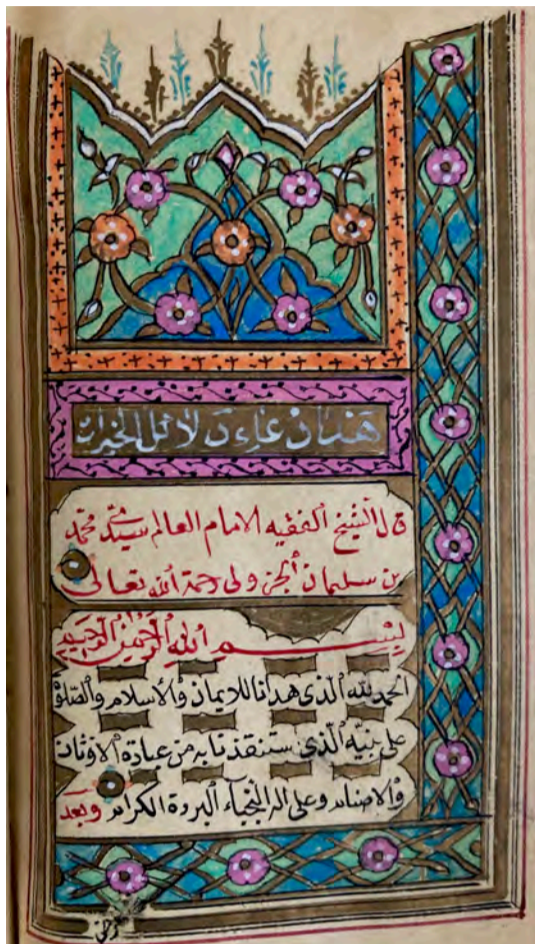 هذا دعاء دلائل الخيرات
قال الشيخ الفقيه الامام العالم سيدي محمد
بن سليمان الجزولى رحمة الله تعالى
بسم الله الرحمن الرحيم
الحمد لله الذى هدانا للايمان والاسلام والصلوة
على نبيه الذى ستنقذنا به من عبادة الاوثان
والاصنام وعلى اله النجباء البررة الكرام وبعد